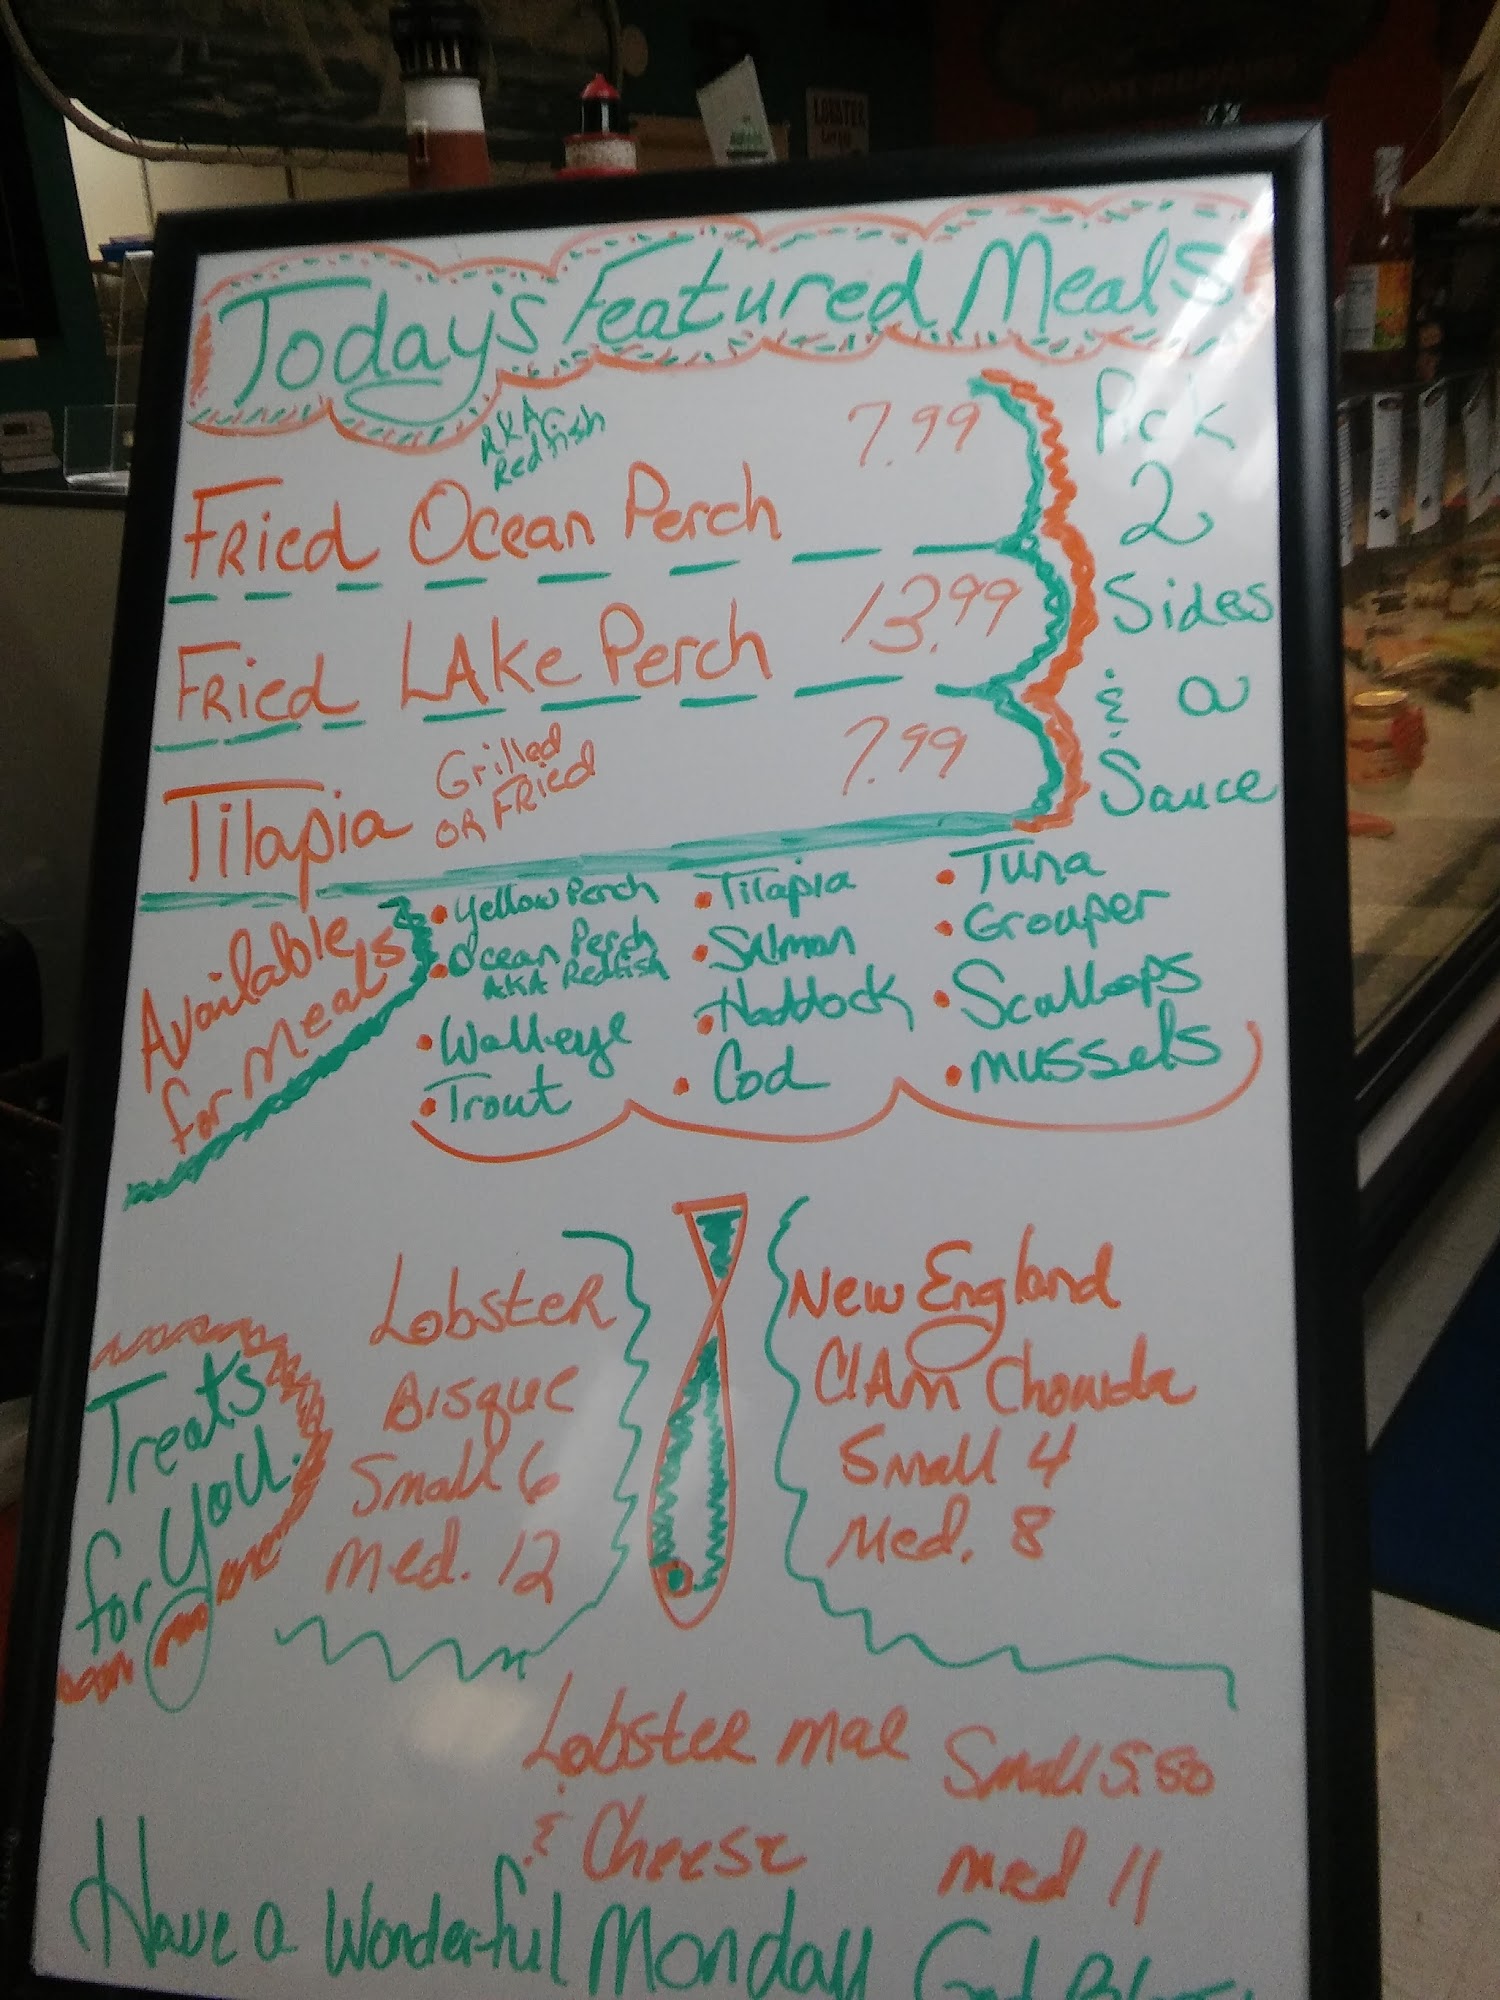 LOBSTER
Today's Featured Meals
AKA
Redfish
Fried Ocean Perch 7.99
Fried LAke Perch 13.99
Tilapia Grilled
OR FRied 7.99
Pick
2
Sides
& a
Sauce
Available
for meals
• Yellow Perch
• Ocean Perch
AKA Redfish
• Walleye
• Trout
• Tilapia
• Salmon
• Haddock
• Cod
• Tuna
• Grouper
• Scallops
• mussels
Treats
for you.
Lobster
Bisque
Small 6
Med. 12
New England
ClAm Chowda
Small 4
Med. 8
Lobster mac
& Cheese
Small 5.50
med 11
Have a Wonderful Monday God